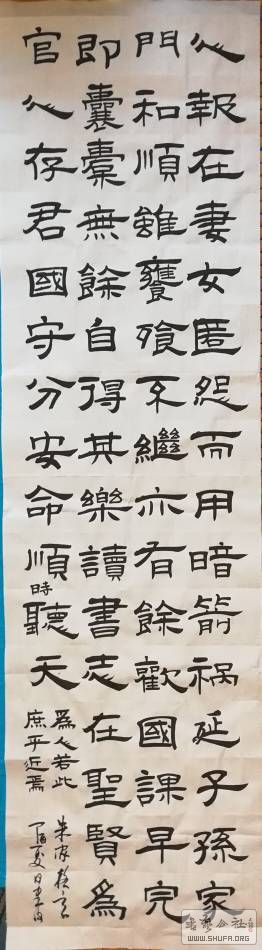 心報在妻女匿怨而用暗箭禍延子孫家
門和順雖饔飧不繼亦有餘歡國課早完
即囊橐無餘自得其樂讀書志在聖賢爲
官心存君國守分安命順時聽天
爲人若此
庶乎近焉
朱家格言
書藝公社
WWW.SHUFA.ORG